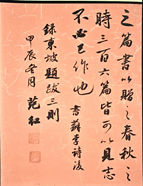 之篇書以贈之春秋之
時三百六篇皆可以見志
不必己作也 書鮮于李詩後
錄東坡題跋三則
甲辰冬月 范紅